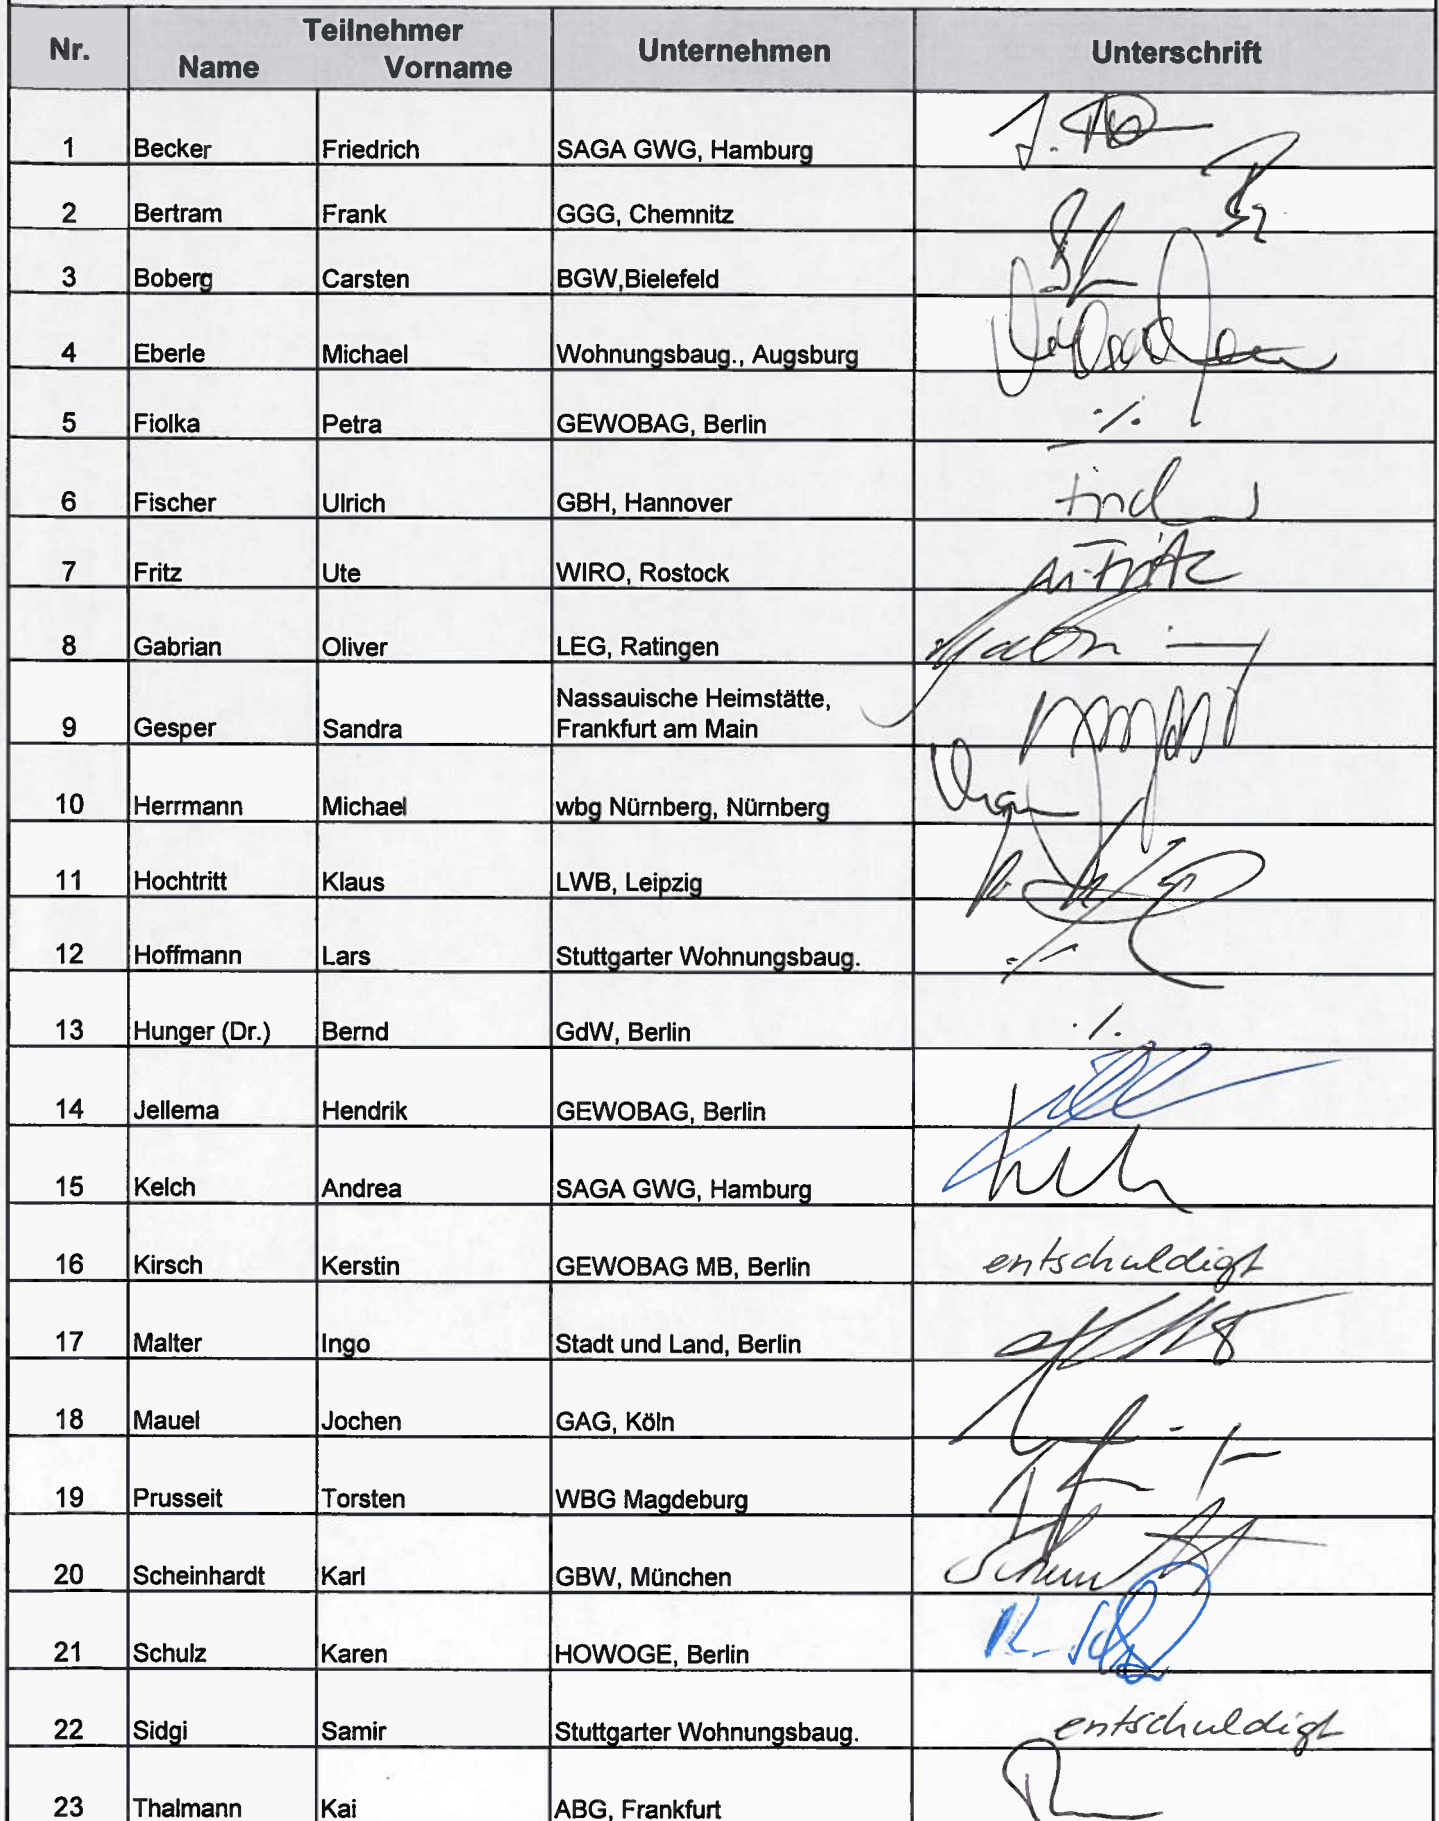 Nr. Teilnehmer Unternehmen Unterschrift
Name Vorname
1 Becker Friedrich SAGA GWG, Hamburg
2 Bertram Frank GGG, Chemnitz
3 Boberg Carsten BGW,Bielefeld
4 Eberle Michael Wohnungsbaug., Augsburg
5 Fiolka Petra GEWOBAG, Berlin ./.
6 Fischer Ulrich GBH, Hannover
7 Fritz Ute WIRO, Rostock
8 Gabrian Oliver LEG, Ratingen
Nassauische Heimstätte,
9 Gesper Sandra Frankfurt am Main
10 Herrmann Michael wbg Nürnberg, Nürnberg
11 Hochtritt Klaus LWB, Leipzig
12 Hoffmann Lars Stuttgarter Wohnungsbaug. ./.
13 Hunger (Dr.) Bernd GdW, Berlin ./.
14 Jellema Hendrik GEWOBAG, Berlin
15 Kelch Andrea SAGA GWG, Hamburg
16 Kirsch Kerstin GEWOBAG MB, Berlin entschuldigt
17 Malter Ingo Stadt und Land, Berlin
18 Mauel Jochen GAG, Köln
19 Prusseit Torsten WBG Magdeburg
20 Scheinhardt Karl GBW, München
21 Schulz Karen HOWOGE, Berlin
22 Sidgi Samir Stuttgarter Wohnungsbaug. entschuldigt
23 Thalmann Kai ABG, Frankfurt